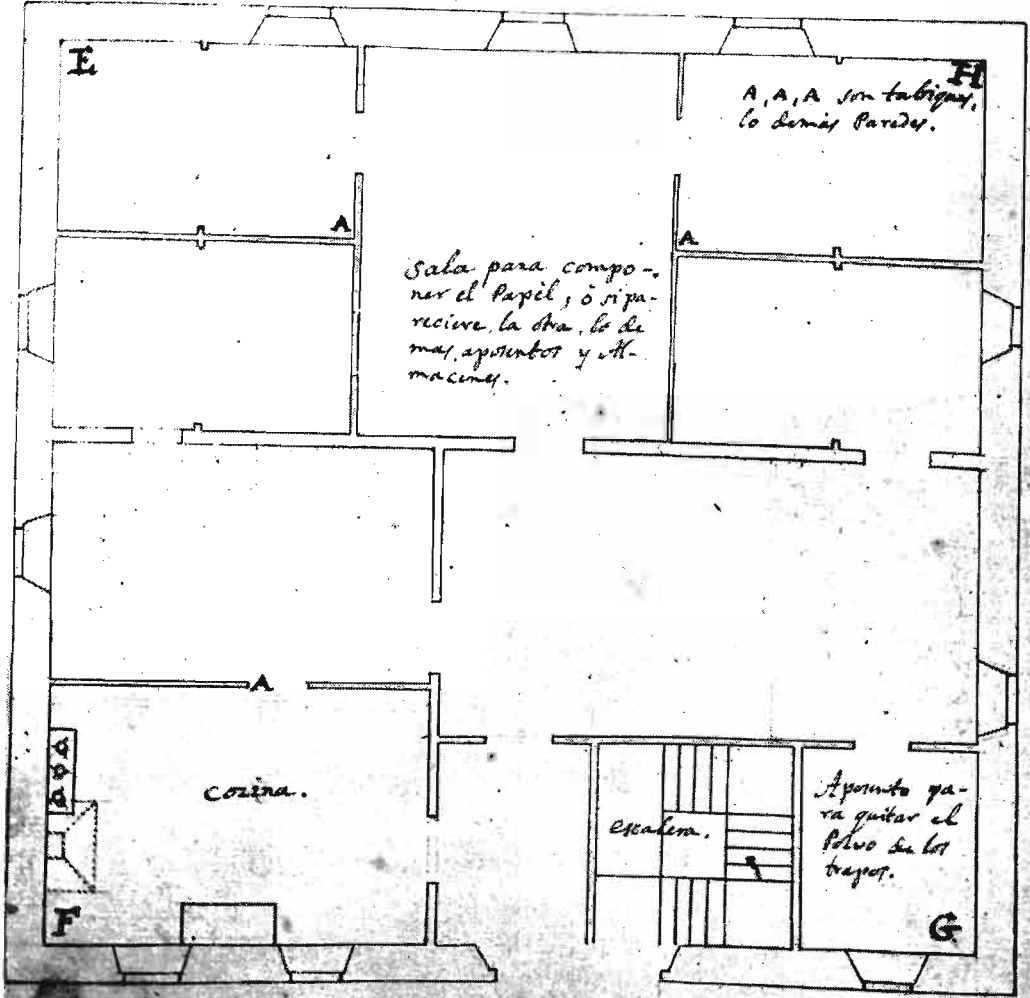 E
H
A, A, A son tabiques,
lo demás Paredes.
A
A
Sala para compo-
ner el Papel, ò si pa-
reciere, la otra, lo de
mas, aposentos y Al-
macenes.
A
cozina.
escalera.
Aposento pa-
ra quitar el
Polvo de los
trapos.
F
G